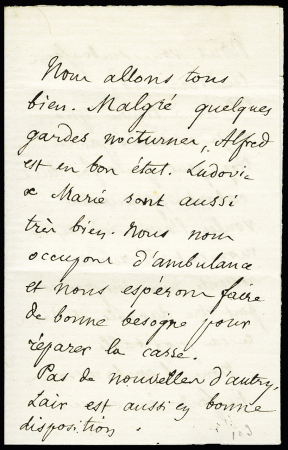 Nous allons tous
bien. Malgré quelques
gardes nocturnes, Alfred
est en bon état. Ludovic
& Marie sont aussi
très bien. Nous nous
occupons d'ambulance
et nous espérons faire
de bonne besogne pour
réparer la casse.
Pas de nouvelles d'autry,
Lair est aussi en bonne
disposition.